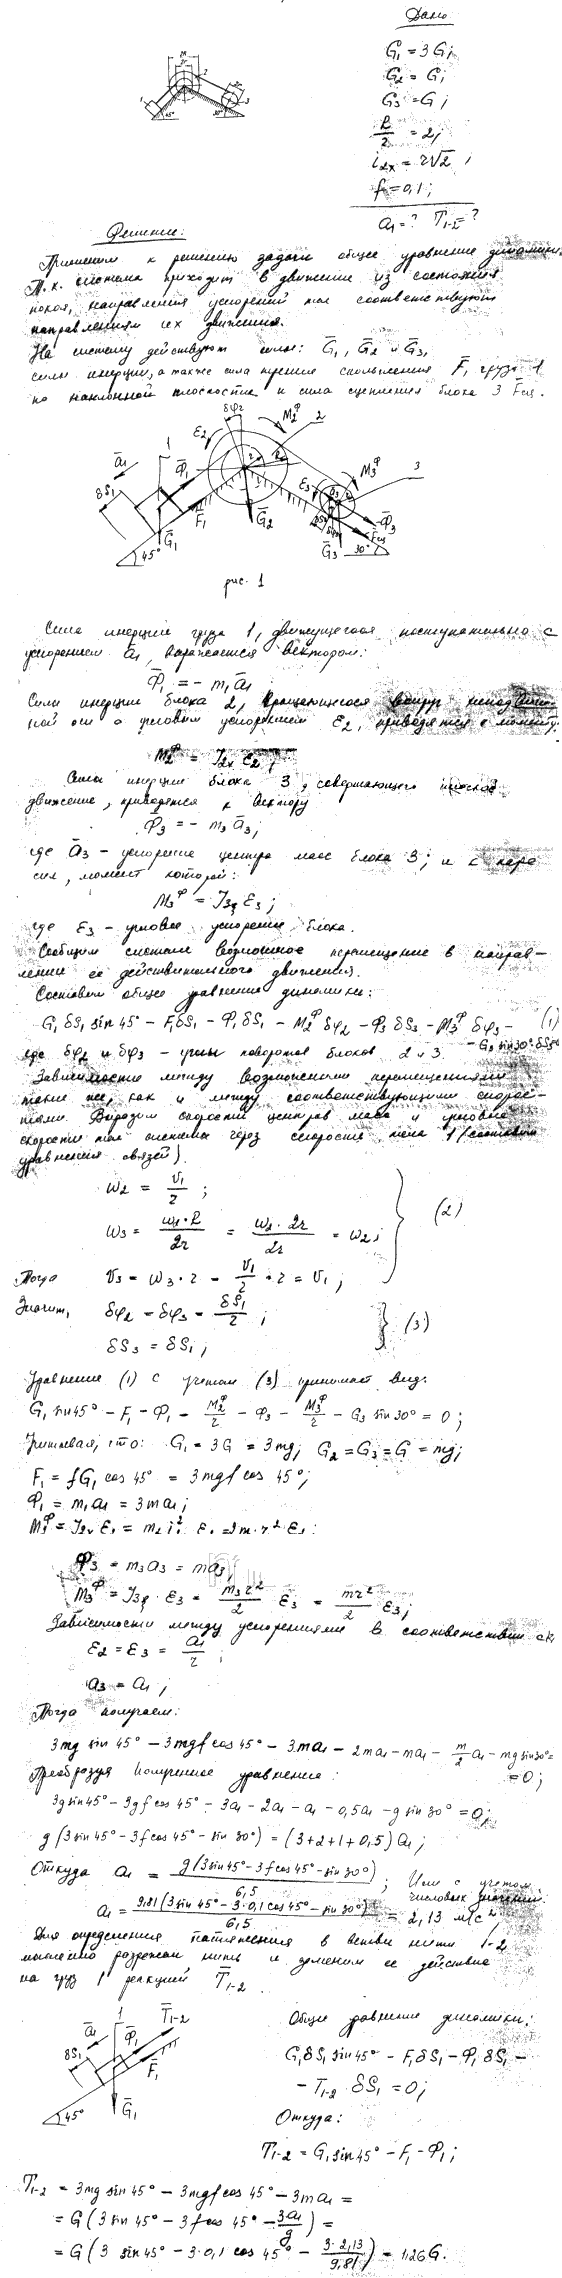 Дано
G₁ = 3G;
G₂ = G;
G₃ = G;
R/r = 2;
i₂ₓ = r√2;
f = 0,1;
a₁ = ? T₁₋₂ = ?
Решение:
Применим к решению задачи общее уравнение динамики.
Т.к. система приходит в движение из состояния
покоя, направления ускорений тел соответствуют
направлениям их движения.
На систему действуют силы: G̅₁, G̅₂ и G̅₃,
силы инерции, а также сила трения скольжения F̅₁ груза 1
по наклонной плоскости и сила сцепления блока 3 F̅сц.
рис. 1
Сила инерции груза 1, движущегося поступательно с
ускорением a̅₁, выражается вектором:
Φ̅₁ = - m₁a̅₁
Силы инерции блока 2, вращающегося вокруг неподвиж-
ной оси с угловым ускорением ε₂, приводятся к моменту:
M₂ᶲ = J₂ₓ ε₂;
Силы инерции блока 3, совершающего плоское
движение, приводятся к вектору
Φ̅₃ = - m₃a̅₃;
где a̅₃ - ускорение центра масс блока 3; и к паре
сил, момент которой:
M₃ᶲ = J₃ξ ε₃;
где ε₃ - угловое ускорение блока.
Сообщим системе возможное перемещение в направ-
лении ее действительного движения.
Составим общее уравнение динамики:
G₁δS₁ sin 45° - F₁δS₁ - Φ₁δS₁ - M₂ᶲ δφ₂ - Φ₃ δS₃ - M₃ᶲ δφ₃ - (1)
- G₃ sin 30° δS₃ = 0
где δφ₂ и δφ₃ - углы поворотов блоков 2 и 3.
Зависимости между возможными перемещениями
такие же, как и между соответствующими скорос-
тями. Выразим скорости центров масс и угловые
скорости тел системы через скорость тела 1 (составим
уравнения связей).
ω₂ = v₁/r;
ω₃ = ω₂·R/2r = ω₂·2r/2r = ω₂; (2)
Тогда v₃ = ω₃·r = v₁/r · r = v₁;
Значит, δφ₂ = δφ₃ = δS₁/r; (3)
δS₃ = δS₁;
Уравнение (1) с учетом (3) принимает вид:
G₁ sin 45° - F₁ - Φ₁ - M₂ᶲ/r - Φ₃ - M₃ᶲ/r - G₃ sin 30° = 0;
Учитывая, что: G₁ = 3G = 3mg; G₂ = G₃ = G = mg;
F₁ = fG₁ cos 45° = 3mgf cos 45°;
Φ₁ = m₁a₁ = 3ma₁;
Φ₃ = m₃a₃ = ma₃
M₃ᶲ = J₃ξ · ε₃ = m₃r²/2 ε₃ = mr²/2 ε₃;
Зависимости между ускорениями в соответствии с
ε₂ = ε₃ = a₁/r;
a₃ = a₁;
Тогда получаем:
3mg sin 45° - 3mgf cos 45° - 3ma₁ - 2ma₁ - ma₁ - m/2 a₁ - mg sin 30° =
= 0;
Преобразуя полученное уравнение:
3g sin 45° - 3gf cos 45° - 3a₁ - 2a₁ - a₁ - 0,5a₁ - g sin 30° = 0;
g(3 sin 45° - 3f cos 45° - sin 30°) = (3+2+1+0,5)a₁;
Откуда a₁ = g(3 sin 45° - 3f cos 45° - sin 30°)/6,5; Или с учетом
числовых значений:
a₁ = 9,81(3 sin 45° - 3·0,1 cos 45° - sin 30°)/6,5 = 2,13 м/с²
Для определения натяжения в ветви нити 1-2
мысленно разрежем нить и заменим ее действие
на груз 1 реакцией T̅₁₋₂.
Общее уравнение динамики:
G₁δS₁ sin 45° - F₁δS₁ - Φ₁δS₁ -
- T₁₋₂ · δS₁ = 0;
Откуда:
T₁₋₂ = G₁ sin 45° - F₁ - Φ₁;
T₁₋₂ = 3mg sin 45° - 3mgf cos 45° - 3ma₁ =
= G(3 sin 45° - 3f cos 45° - 3a₁/g) =
= G(3 sin 45° - 3·0,1 cos 45° - 3·2,13/9,81) = 1,26G.